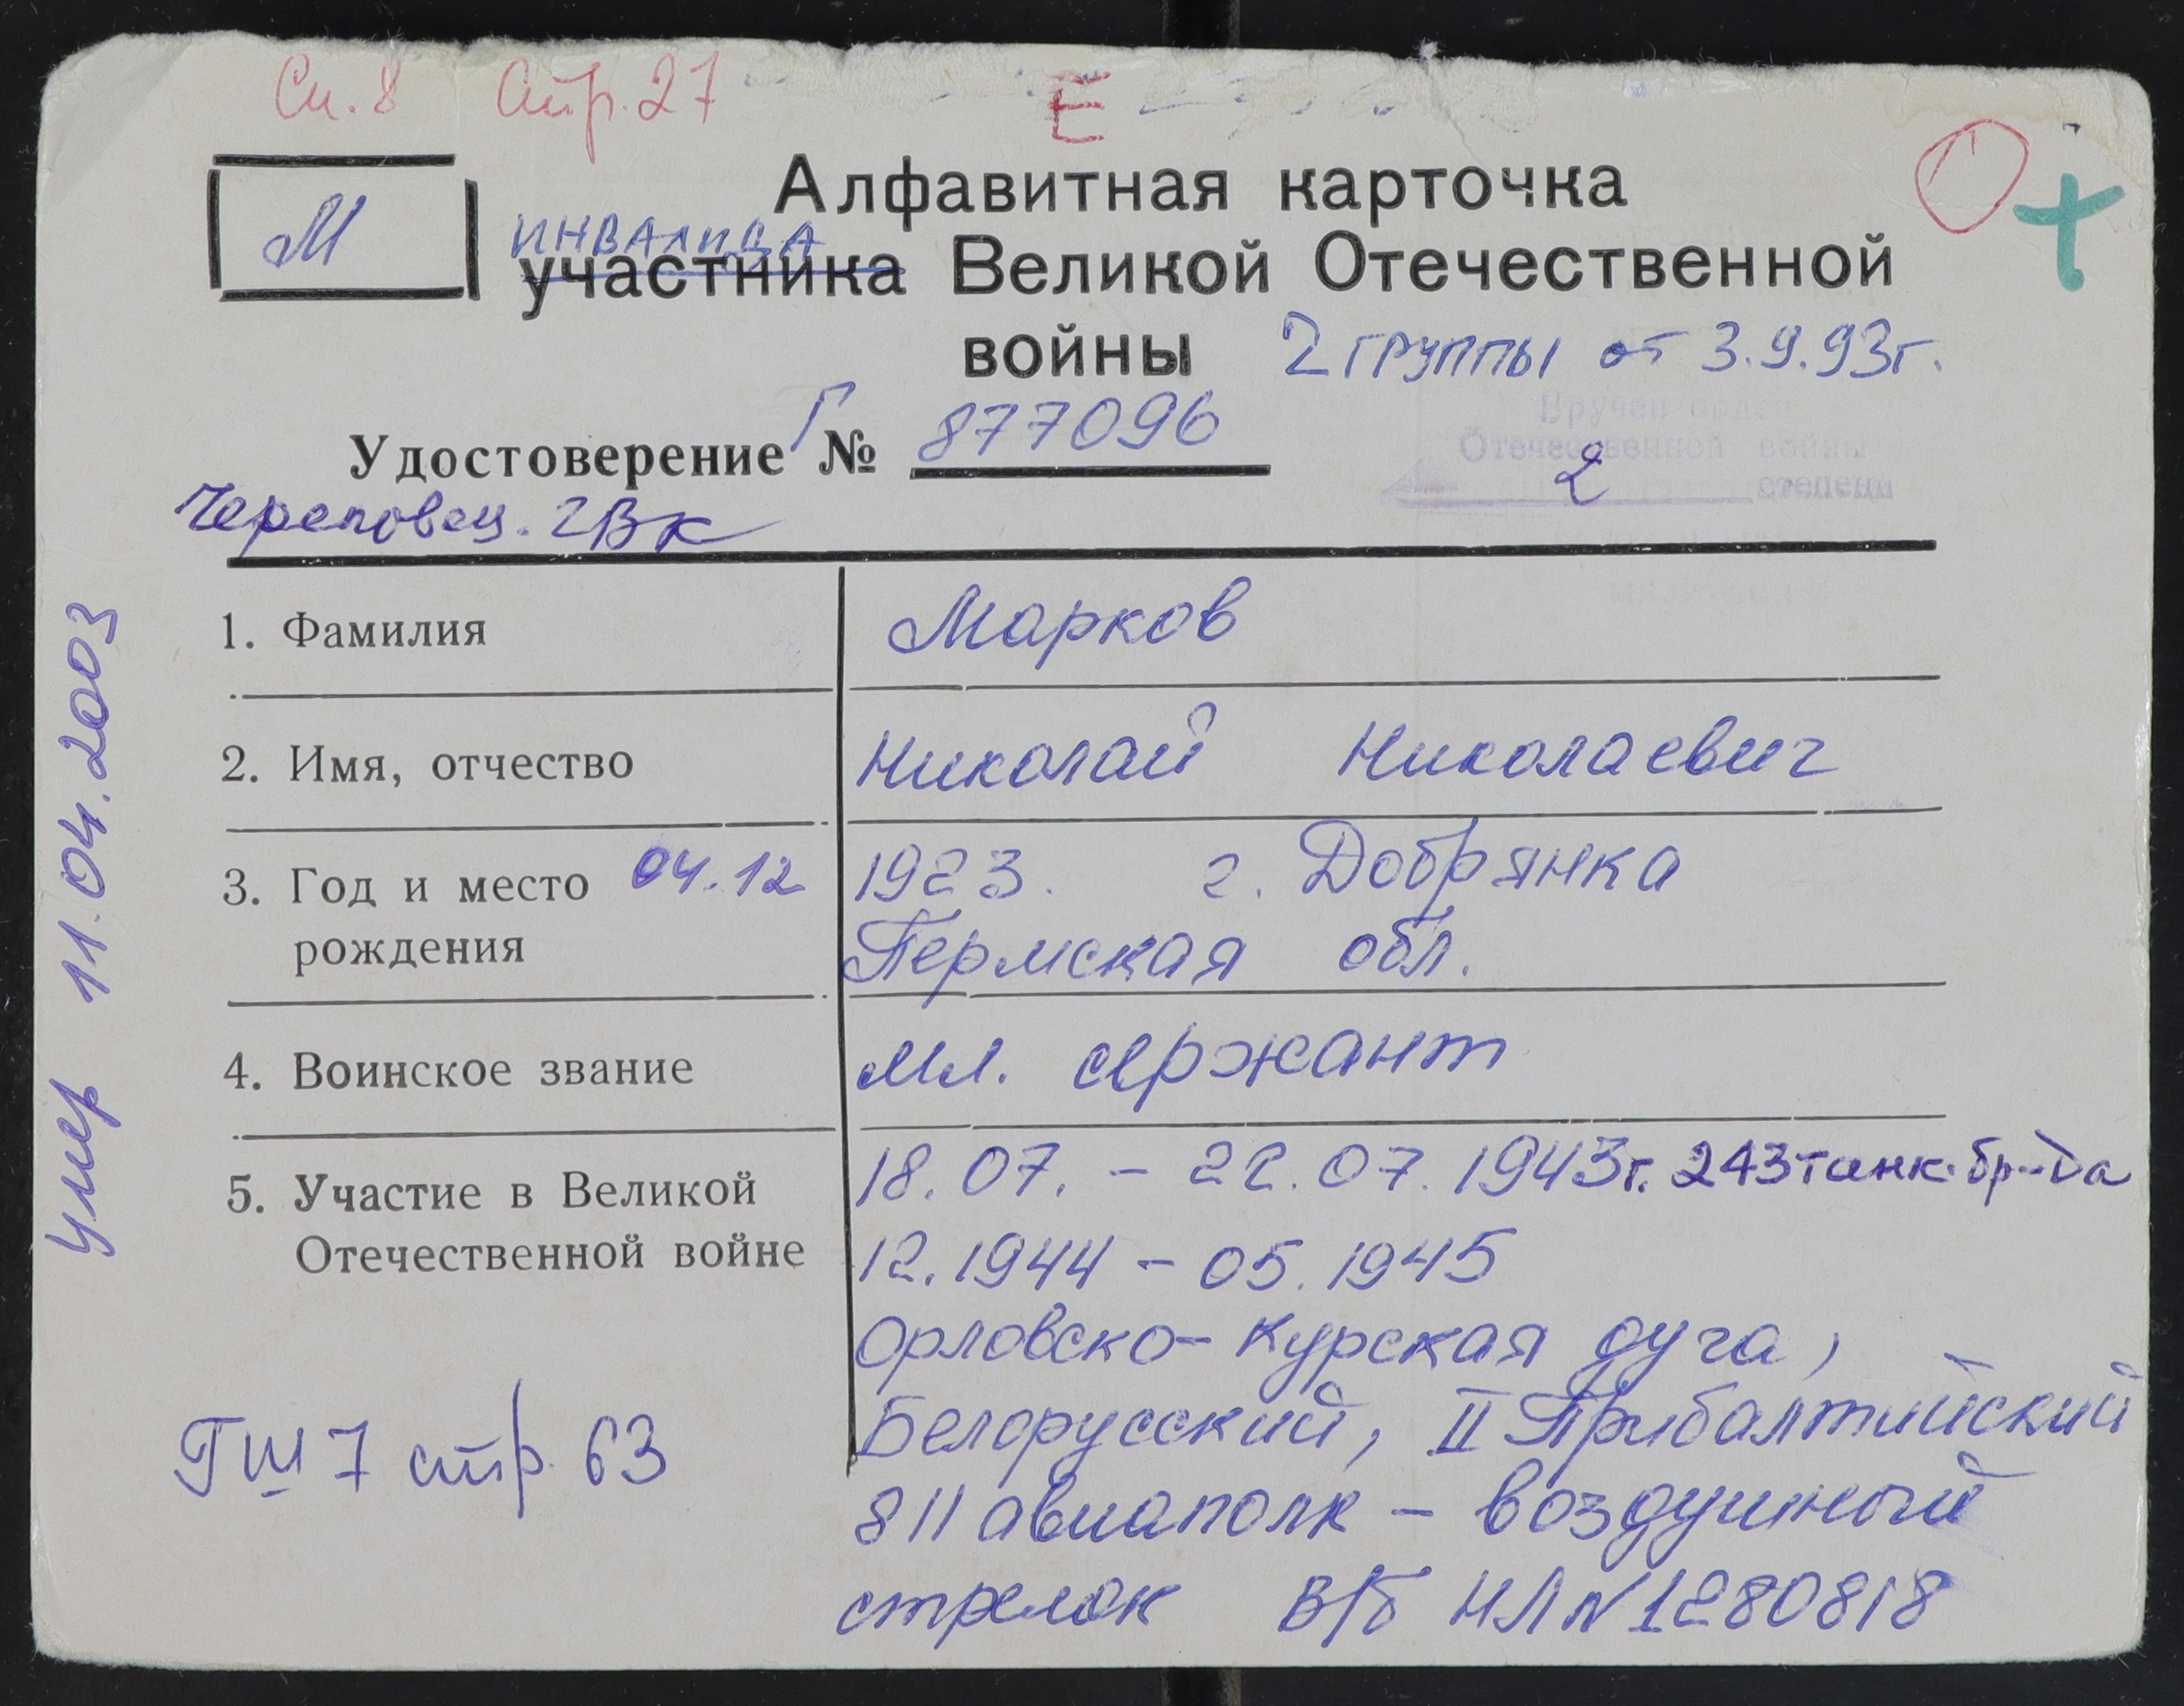 Сп. 8 стр. 27 Е
Алфавитная карточка
М
инвалида
участника Великой Отечественной
войны 2 группы от 3.9.93г.
Удостоверение Г № 877096
Вручен орден
Отечественной войны
2 степени
Череповец. ГВК
1. Фамилия Марков
2. Имя, отчество Николай Николаевич
3. Год и место 04.12 1923. г. Добрянка
рождения Пермская обл.
4. Воинское звание мл. сержант
5. Участие в Великой 18.07. - 22.07.1943г. 243 танк. бр-да
Отечественной войне 12.1944 - 05.1945
Орловско-Курская дуга,
Белорусский, II Прибалтийский
811 авиаполк - воздушный
стрелок В/б НЛ № 1280818
ГШ 7 стр. 63
умер 11.04.2003